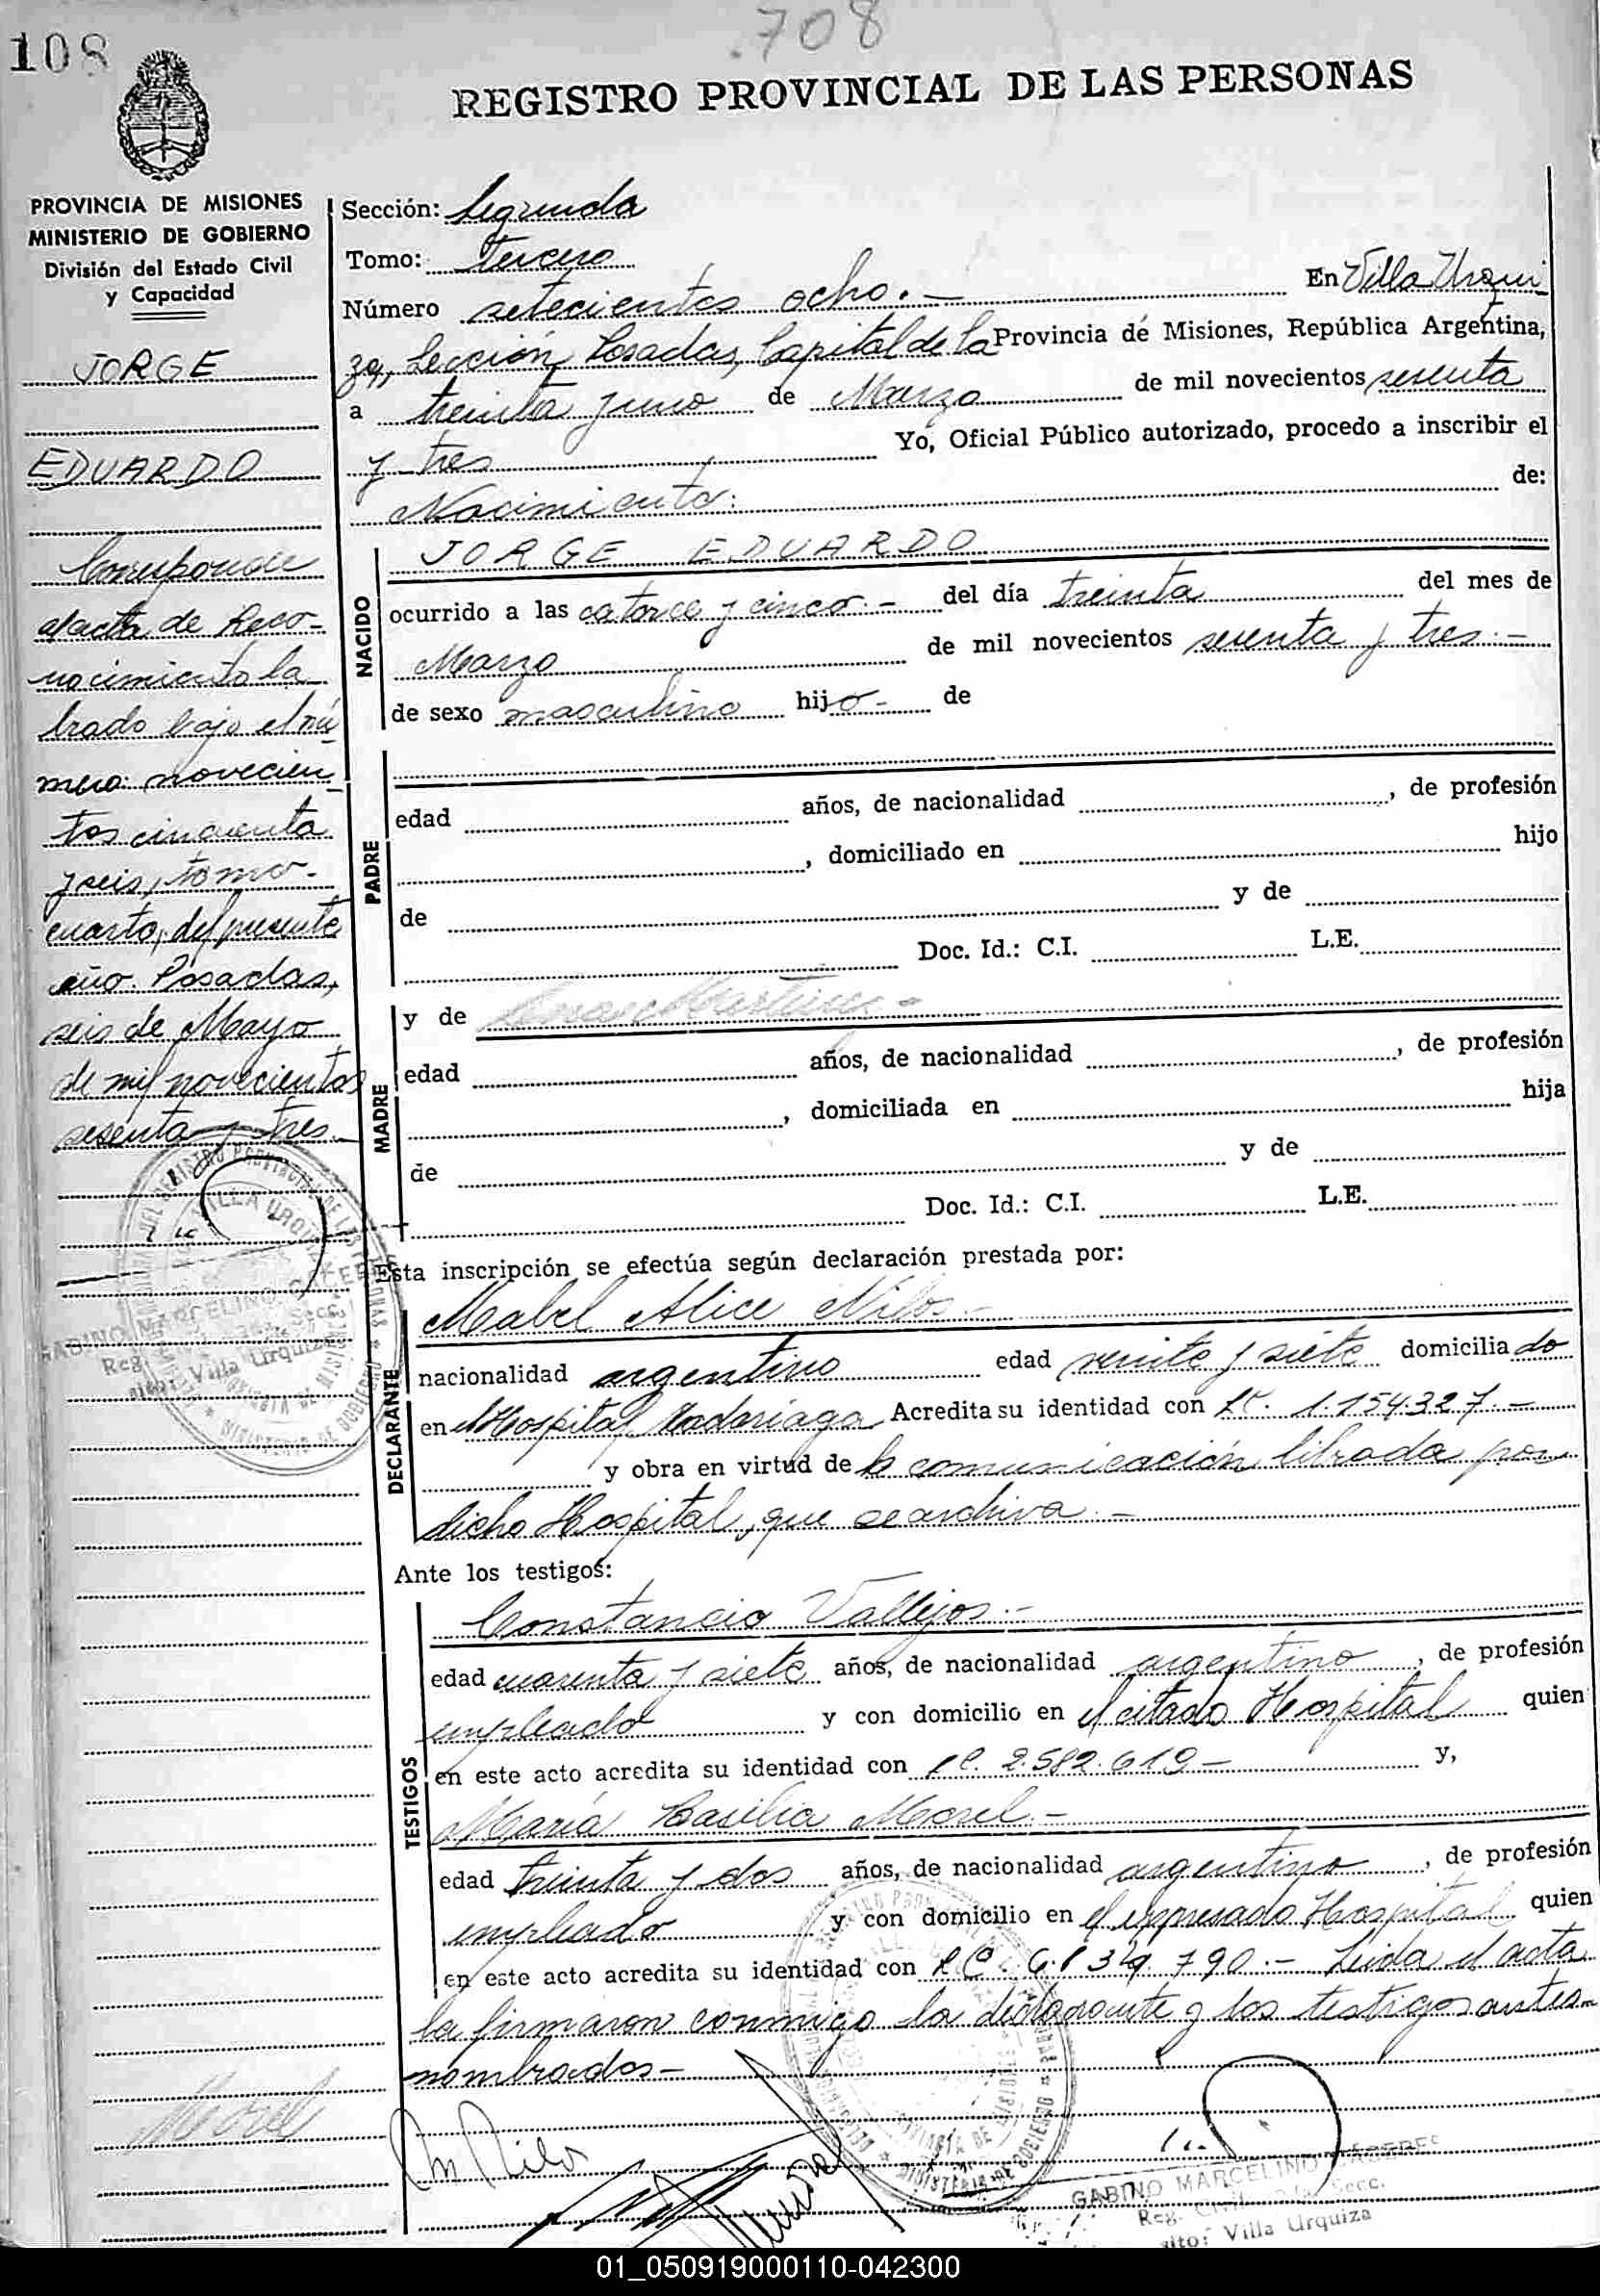 108
708
REGISTRO PROVINCIAL DE LAS PERSONAS
PROVINCIA DE MISIONES
MINISTERIO DE GOBIERNO
División del Estado Civil
y Capacidad
JORGE
EDUARDO
Corresponde
al acta de Reco-
nocimiento la
brado bajo el nú-
mero: novecien
tos cincuenta
y seis, tomo-
cuarto, del presente
año. Posadas,
seis de Mayo
de mil novecientos
sesenta y tres.-
Sección: Segunda
Tomo: tercero
Número setecientos ocho.- En Villa Urqui
za, Sección Posadas, Capital de la Provincia de Misiones, República Argentina,
a treinta y uno de Marzo de mil novecientos sesenta
y tres Yo, Oficial Público autorizado, procedo a inscribir el
Nacimiento: de:
NACIDO
JORGE EDUARDO
ocurrido a las catorce y cinco.- del día treinta del mes de
Marzo de mil novecientos sesenta y tres.-
de sexo masculino hijo- de
PADRE
edad años, de nacionalidad , de profesión
, domiciliado en hijo
de y de
Doc. Id.: C.I. L.E.
MADRE
y de
edad años, de nacionalidad , de profesión
, domiciliada en hija
de y de
Doc. Id.: C.I. L.E.
Esta inscripción se efectúa según declaración prestada por:
DECLARANTE
Mabel Alice Nilos.-
nacionalidad argentino edad veinte y siete domiciliado
en el Hospital Madariaga Acredita su identidad con 1.154.327.-
y obra en virtud de la comunicación librada por
dicho Hospital, que se archiva.-
Ante los testigos:
TESTIGOS
Constancio Vallejos.-
edad cuarenta y siete años, de nacionalidad argentino , de profesión
empleado y con domicilio en el citado Hospital quien
en este acto acredita su identidad con 2.582.619- y,
María Basilia Morel.-
edad treinta y dos años, de nacionalidad argentino , de profesión
empleado y con domicilio en el expresado Hospital quien
en este acto acredita su identidad con Leida el acta
la firmaron conmigo la declarante y los testigos antes-
nombrados-
Morel
GABINO MARCELINO CACERES
Villa Urquiza
01_050919000110-042300